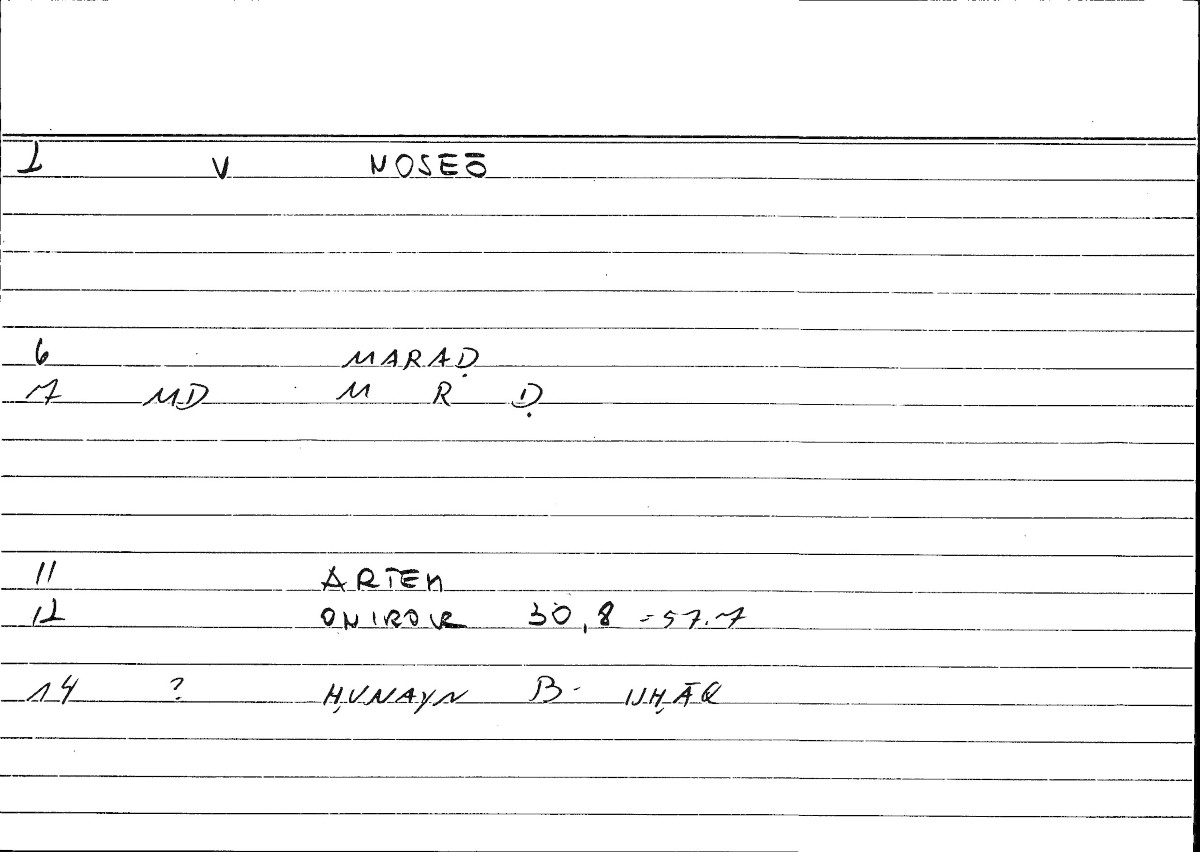 1 V NOSEŌ
6 MARAḌ
7 MD M R Ḍ
11 ARTEM
12 ONIROK 30,8 = 57.7
14 ? ḤUNAYN B. ISḤĀQ